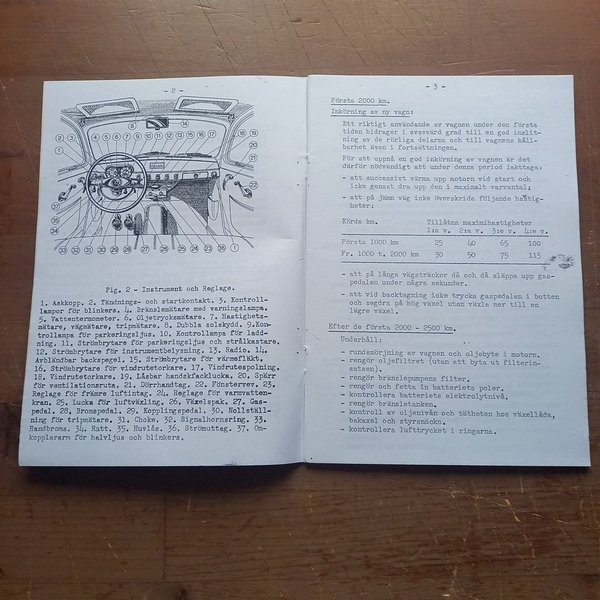 - 2 -
Fig. 2 - Instrument och Reglage.
1. Askkopp. 2. Tändnings- och startkontakt. 3. Kontroll-
lampor för blinkers. 4. Bränslemätare med varningslampa.
5. Vattentermometer. 6. Oljetrycksmätare. 7. Hastighets-
mätare, vägmätare, tripmätare. 8. Dubbla solskydd. 9. Kon-
trollampa för parkeringsljus. 10. Kontrollampa för ladd-
ning. 11. Strömbrytare för parkeringsljus och strålkastare.
12. Strömbrytare för instrumentbelysning. 13. Radio. 14.
Avbländbar backspegel. 15. Strömbrytare för värmefläkt.
16. Strömbrytare för vindrutetorkare. 17. Vindrutespolning.
18. Vindrutetorkare. 19. Låsbar handskfacklucka. 20. Spärr
för ventilationsruta. 21. Dörrhandtag. 22. Fönstervev. 23.
Reglage för främre luftintag. 24. Reglage för varmvatten-
kran. 25. Lucka för luftväxling. 26. Växelspak. 27. Gas-
pedal. 28. Bromspedal. 29. Kopplingspedal. 30. Nollställ-
ning för tripmätare. 31. Choke. 32. Signalhornsring. 33.
Handbroms. 34. Ratt. 35. Huvlås. 36. Strömuttag. 37. Om-
kopplararm för helvljus och blinkers.
- 3 -
Första 2000 km.
Inkörning av ny vagn:
Ett riktigt användande av vagnen under den första
tiden bidragor i avsevärd grad till en god inslit-
ning av de rörliga delarna och till vagnens håll-
barhet även i fortsättningen.
För att uppnå en god inkörning av vagnen är det
därför nödvändigt att under denna period iakttaga:
- att successivt värma upp motorn vid start och
icke genast dra upp den i maximalt varvantal;
- att på jämn väg icke överskrida följande hastig-
heter:
Körda km. Tillåtna maximihastigheter
1:a v. 2:a v. 3:e v. 4:e v.
Första 1000 km 25 40 65 100
Fr. 1000 t. 2000 km 30 50 75 115
- att på långa vägsträckor då och då släppa upp gas-
pedalen under några sekunder.
- att vid backtagning icke trycka gaspedalen i botten
och segdra på hög växel utan växla ner till en
lägre växel.
Efter de första 2000 - 2500 km.
Underhåll:
- rundsmörjning av vagnen och oljebyte i motorn.
- rengör oljefiltret (utan att byta ut filterin-
satsen).
- rengör bränslepumpens filter.
- rengör och fetta in batteriets poler.
- kontrollera batteriets elektrolytnivå.
- rengör bränsletanken.
- kontroll av oljenivån och tätheten hos växellåda,
bakaxel och styrsnäcka.
- kontrollera lufttrycket i ringarna.